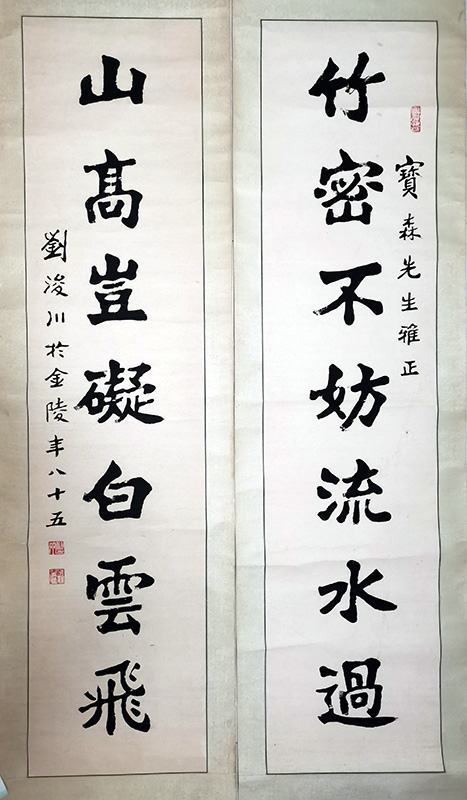 寶森先生雅正
竹密不妨流水過
山高豈礙白雲飛
劉浚川於金陵年八十五